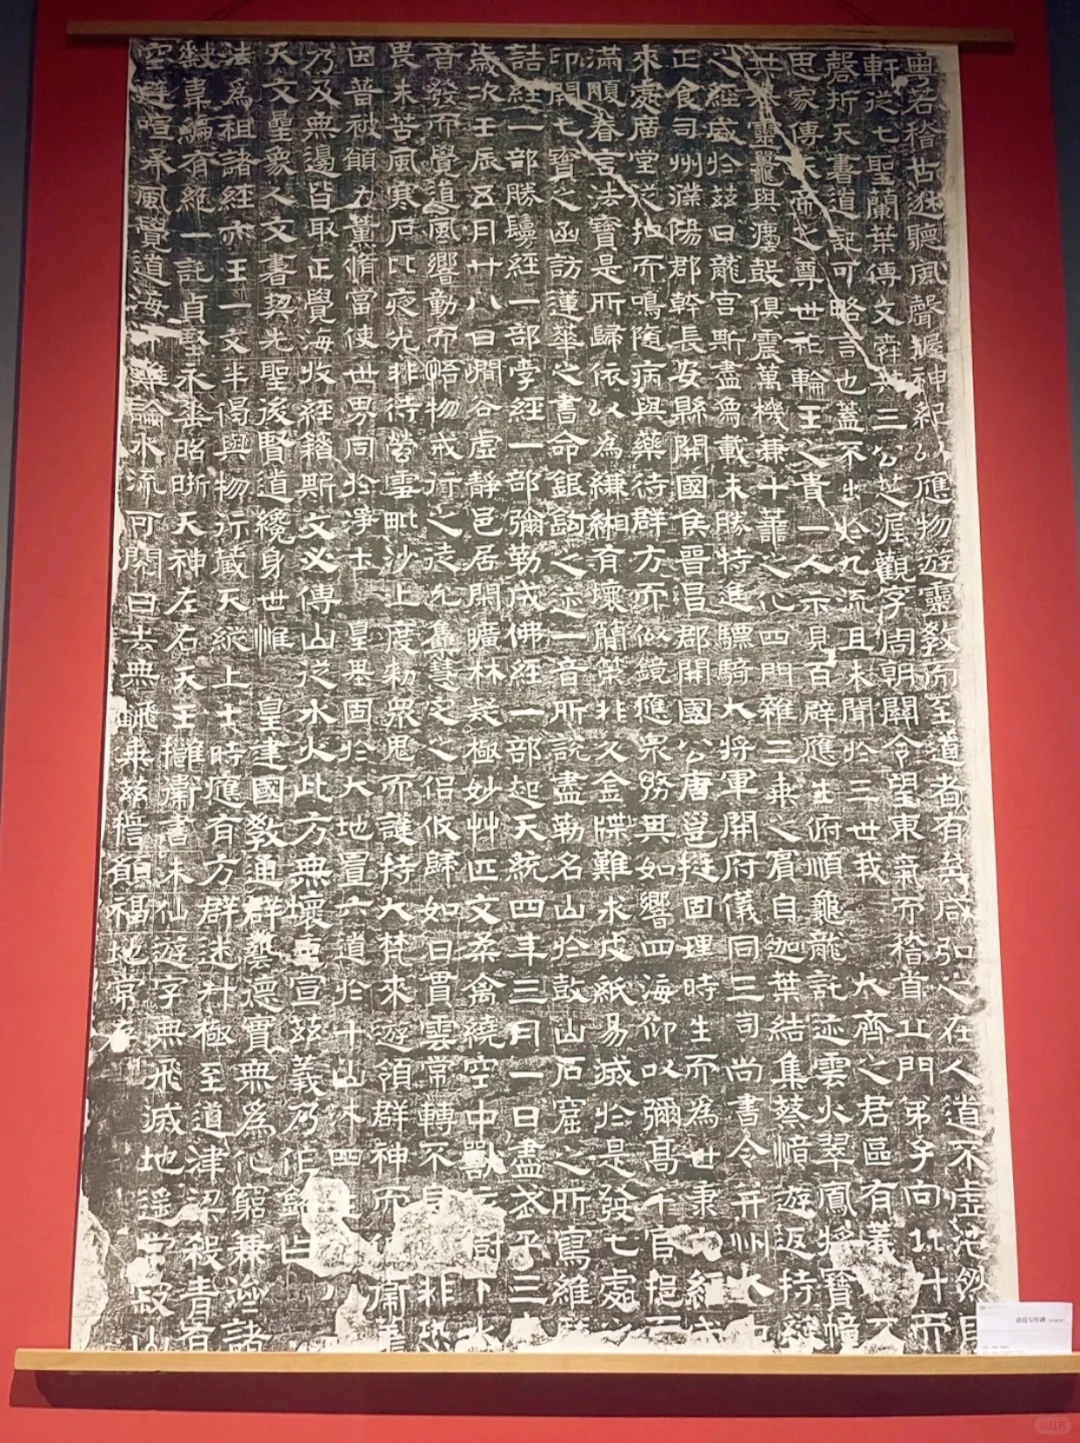 粤若稽古逖聽風聲握神紀以應物遊靈教而至道者有矣咸弘之在人道不虛
軒從七聖蘭葉傳文三公芝渥觀字周朝關令望東氣而稽首丘門弟子向北斗而
罄折天書道記可略言也蓋不出於九流且未聞於三世我大齊之君區有義
思家傳天帝之尊世祚輪王之貴一人示見百辟應生俯順龜龍託迹雲火翠鳳將寶幢
共靈鼉與鼓俱震萬機兼十善之心四門雜三乘之眉自迦葉結集蔡愔遊返持經
之經盛於茲日龍宮斯盡為載未勝特進驃騎大將軍開府儀同三司尚書令并州大
正食司州濮陽郡幹長安縣開國侯晉昌郡開國公唐邕挺固理時生而為世秉
來處廣堂從地而鳴隨病與藥待群方而似鏡應眾務其如響四海仰以彌高千官挹
滿願眷言法寶是所歸依以為縑緗有壞簡策非久金牒難求皮紙易滅於是發七處
印開七寶之函訪蓮華之書命銀鉤之迹一音所說盡勒名山於鼓山石窟之所寫維摩
詰經一部勝鬘經一部孛經一部彌勒成佛經一部起天統四年三月一日盡武平三
歲次壬辰五月廿八日㵎谷虛靜邑居閑曠林疑極妙草匹文柔禽繞空中獸依樹下水
音發而覺道風響動而悟物戒行之徒允集慧定之侶攸歸如日貫雲常轉不息非恐
畏末苦風寒石比夜光非待螢雪毗沙上度勑眾鬼而護持大梵來遊領群神而
因普被願力薰脩當使世界同於淨土皇基固於大地置六道於十山沐四生
乃及無邊皆取正覺海收經籍斯文必傳山從水火此方無壞重宣茲義乃作銘曰
天文壘象人文書契先聖後賢道纏身世惟皇建國教通群藝德實無為心窮兼濟諸
法為祖諸經亦王一文半偈與物行藏天縱上士時應有方群迷升極至道津梁殺青有
缺韋編有絕一託貞堅永垂昭晰天神左右天王擁衛書未仙遊字無飛滅地遙常寂山
空避喧希風寶道海論水流可閱日去無翻乘茲誓願福地常存